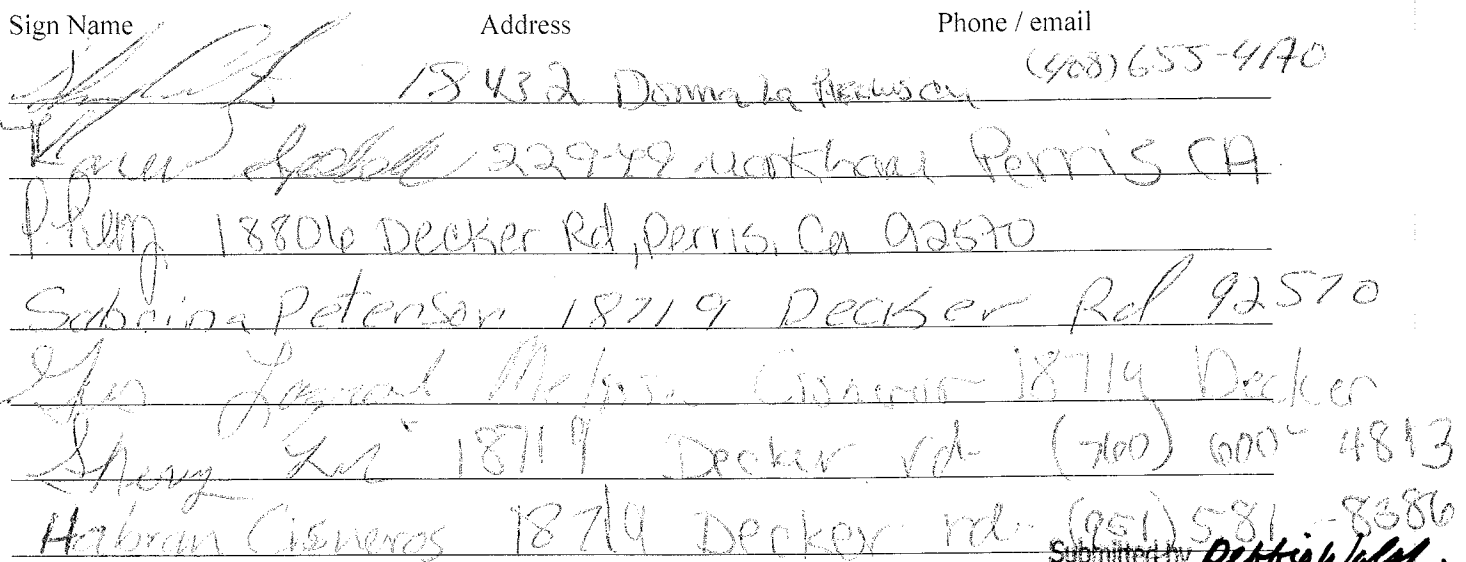 Sign Name Address Phone / email
18432 Donna La (408) 655-4170
Karen 22949 Markham Perris CA
18806 Decker Rd, Perris, Ca 92570
Sabrina Peterson 18719 Decker Rd 92570
Melissa Cisneros 18719 Decker
18719 Decker rd (760) 600-4813
Habran Cisneros 18719 Decker rd (951) 581-8386
Submitted by Debbie Walsh